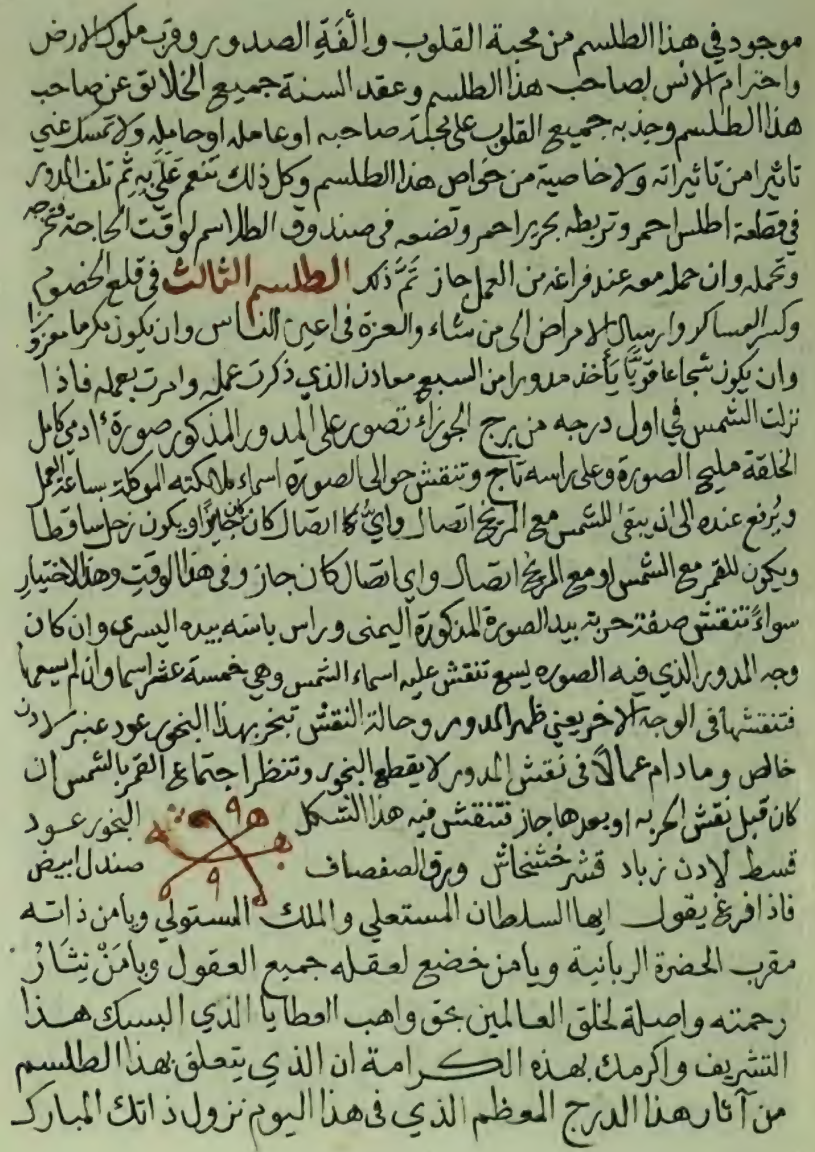 موجود في هذا الطلسم من محبة القلوب والفة الصدور وقرب ملوك الارض
واحترام الانس لصاحب هذا الطلسم وعقد السنة جميع الخلائق عن صاحب
هذا الطلسم وجذبه جميع القلوب على محبة صاحبه او عامله او حامله ولا تمسك عني
تاثيرا من تاثيراته ولا خاصية من خواص هذا الطلسم وكل ذلك تنعم علي به ثم تلف المدور
في قطعة اطلس احمر وتربطه بحرير احمر وتضعه في صندوق الطلاسم لوقت الحاجة فتخرجه
وتحمله وان حمله معه عند فراغه من العمل جاز تم ذلك الطلسم الثالث في قلع الخصوم
وكسر العساكر وارسال الامراض الى من شاء والعزة في اعين الناس وان يكون مكرما معززا
وان يكون شجاعا قويا يأخذ مدورا من السبع معادن الذي ذكرت عمله وامرت بعمله فاذا
نزلت الشمس في اول درجه من برج الجوزاء تصور على المدور المذكور صورة ادمي كامل
الخلقة مليح الصورة وعلى راسه تاج وتنقش حوالى الصوره اسماء ملائكته الموكلة بساعة العمل
ويرفع عنده الى ان يبقى للشمس مع المريخ اتصال واي اتصال كان جاز او يكون زحل ساقطا
ويكون للقمر مع الشمس او مع المريخ اتصال واي اتصال كان جاز وفي هذا الوقت وهذا الاختيار
سواء تنقش صفة حربة بيد الصورة المذكورة اليمنى وراس باشه بيده اليسرى وان كان
وجه المدور الذي فيه الصوره يسع تنقش عليه اسماء الشمس وهي خمسة عشر اسما وان لم يسعها
فتنقشها في الوجه الاخر يعني ظهر المدور وحالة النقش تبخر بهذا البخور عود عنبر لادن
خالص وما دام عمالا في نقش المدور لا يقطع البخور وتنظر اجتماع القمر بالشمس ان
كان قبل نقش الحربه او بعدها جاز فتنقش فيه هذا الشكل البخور عود
قسط لادن زباد قشر خشخاش ورق الصفصاف صندل ابيض
فاذا فرغ يقول ايها السلطان المستعلي والملك المستولي ويا من ذاته
مقرب الحضرة الربانية ويا من خضع لعقله جميع العقول ويا من نثار
رحمته واصلة لخلق العالمين بحق واهب العطايا الذي البسك هذا
التشريف واكرمك بهذه الكرامة ان الذي يتعلق بهذا الطلسم
من آثار هذا الدرج المعظم الذي في هذا اليوم نزول ذاتك المبارك